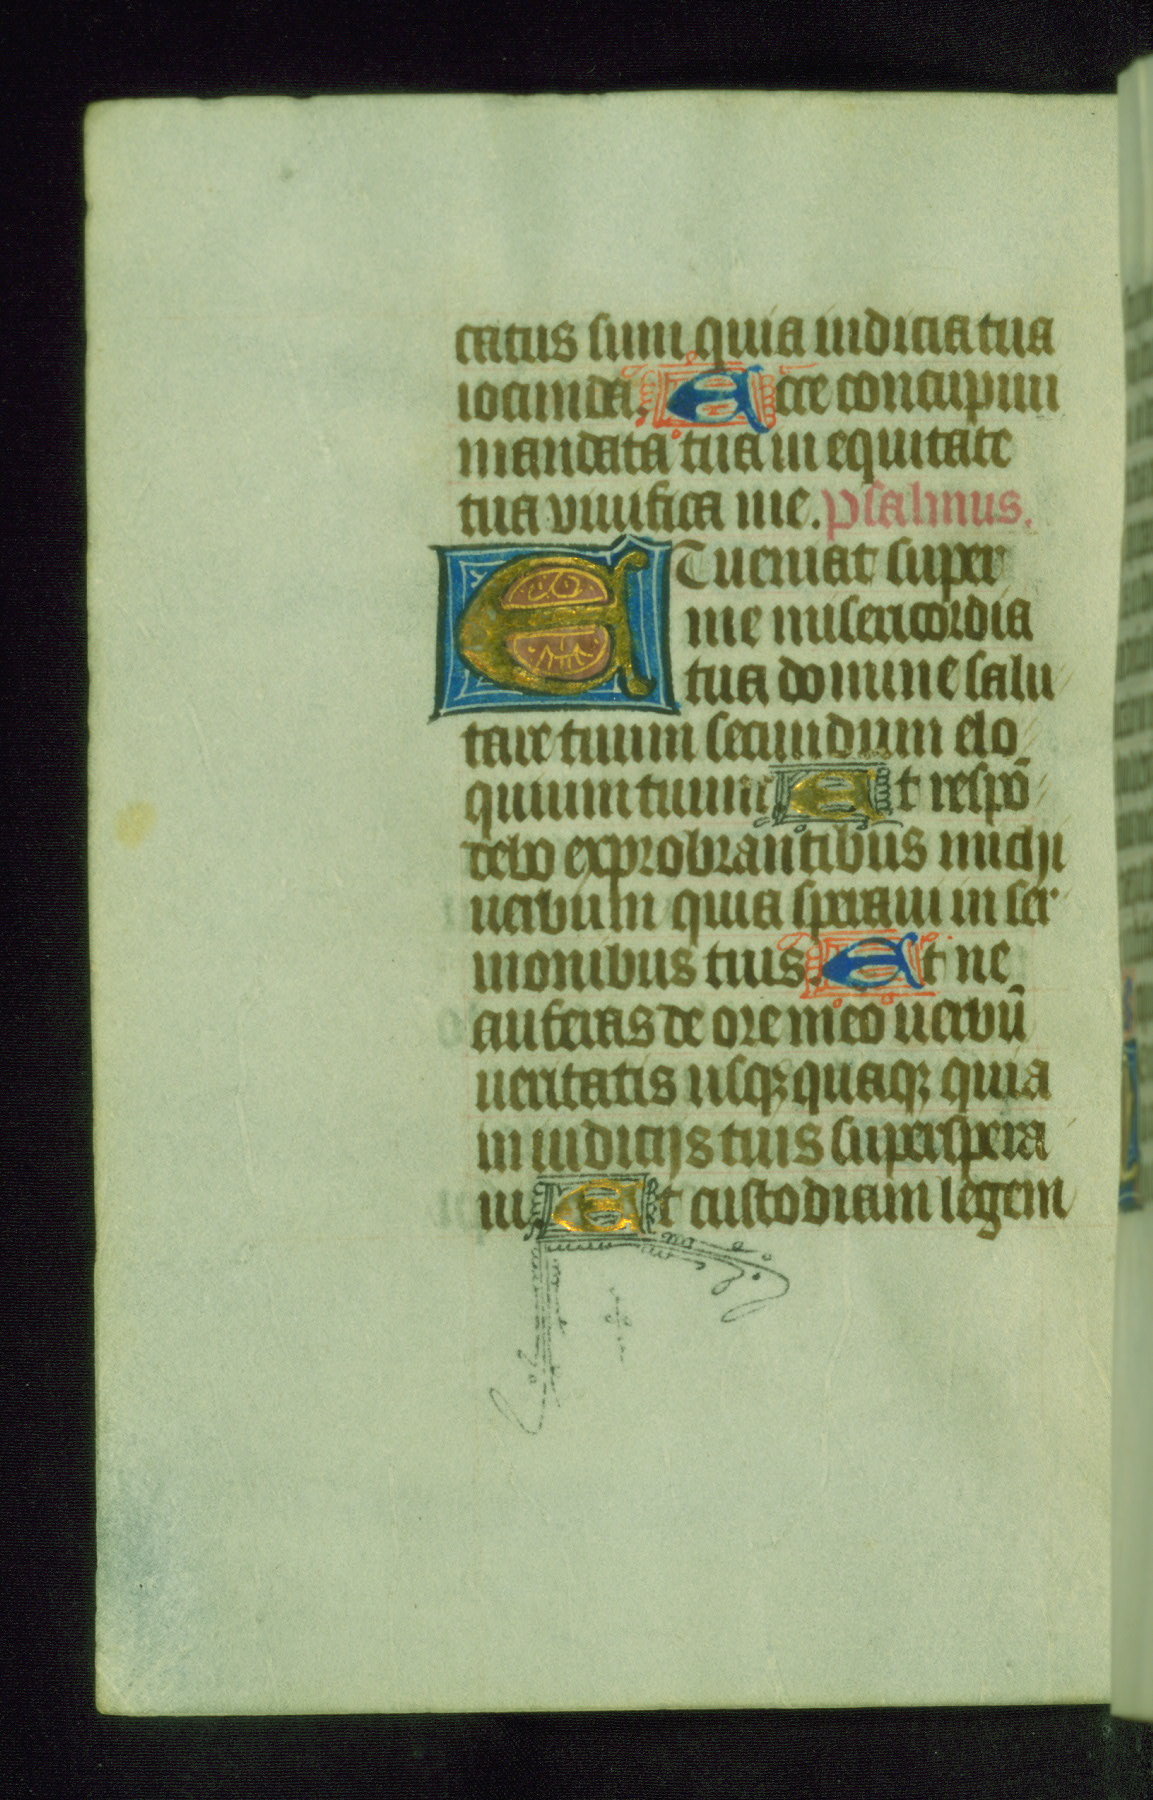 catus sum quia iudicia tua
iocunda. Ecce concupiui
mandata tua in equitate
tua viuifica me. psalmus.
ET ueniat super
me misericordia
tua domine salu
tare tuum secundum elo
quium tuum Et respō
debo exprobrantibus michi
uerbum quia speraui in ser
monibus tuis. Et ne
auferas de ore meo uerbū
ueritatis usqꝫ quaqꝫ quia
in iudicijs tuis superspera
ui Et custodiam legem